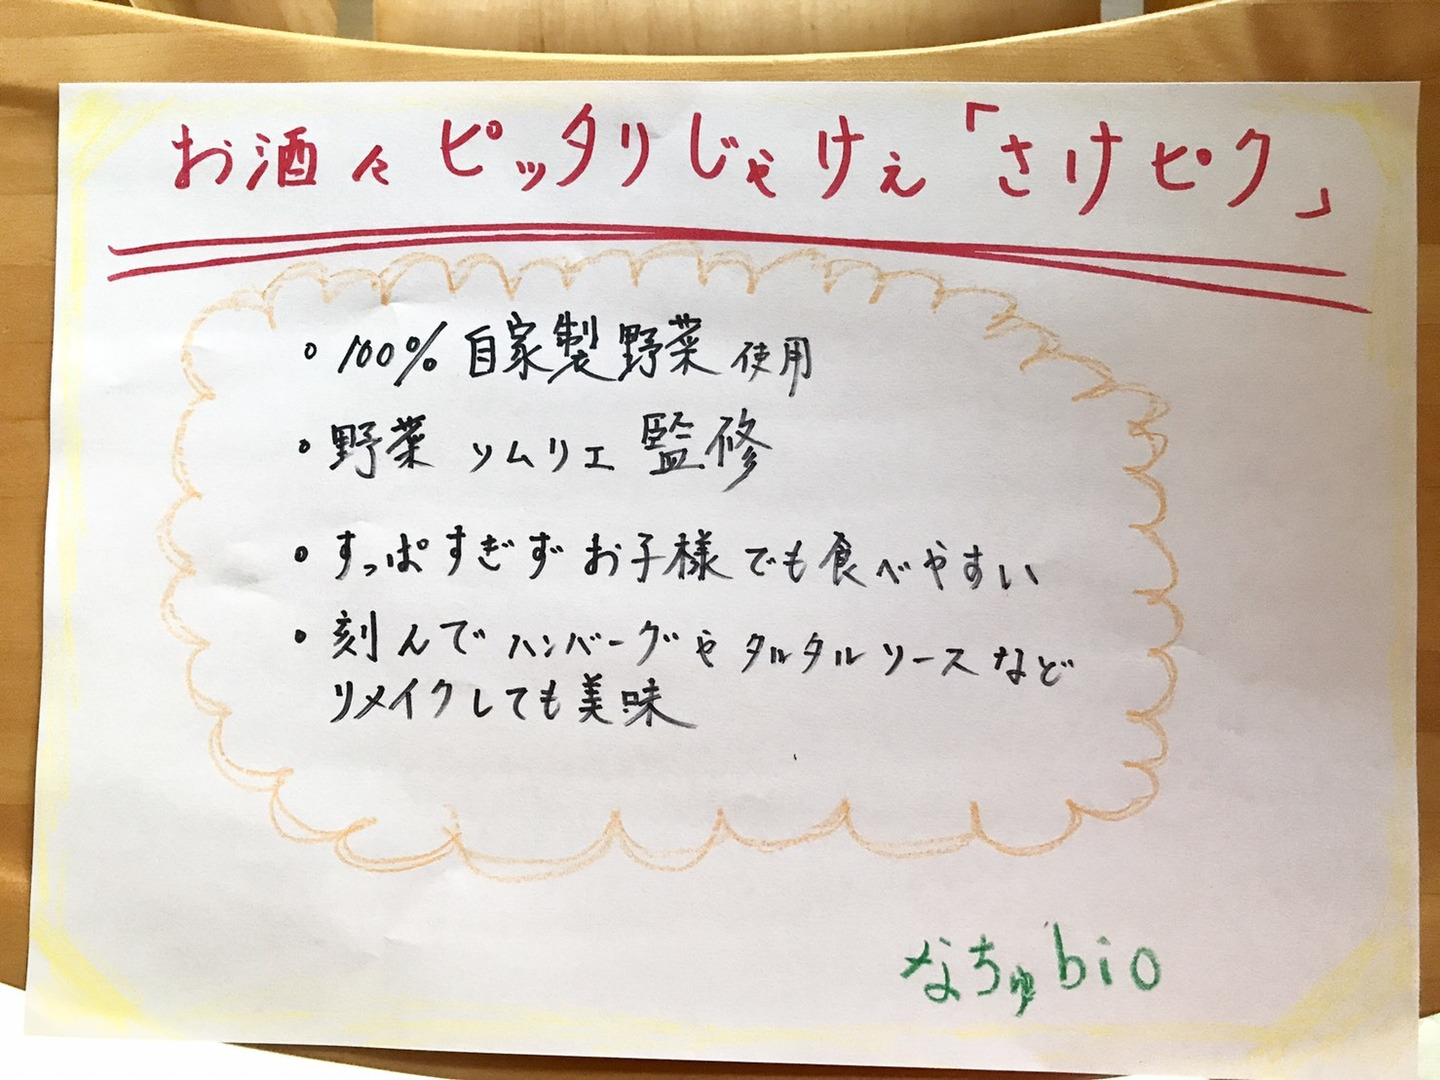 お酒にピッタリじゃけぇ「さけピク」
・100%自家製野菜使用
・野菜ソムリエ監修
・すっぱすぎずお子様でも食べやすい
・刻んでハンバーグやタルタルソースなど
リメイクしても美味
なちゅbio